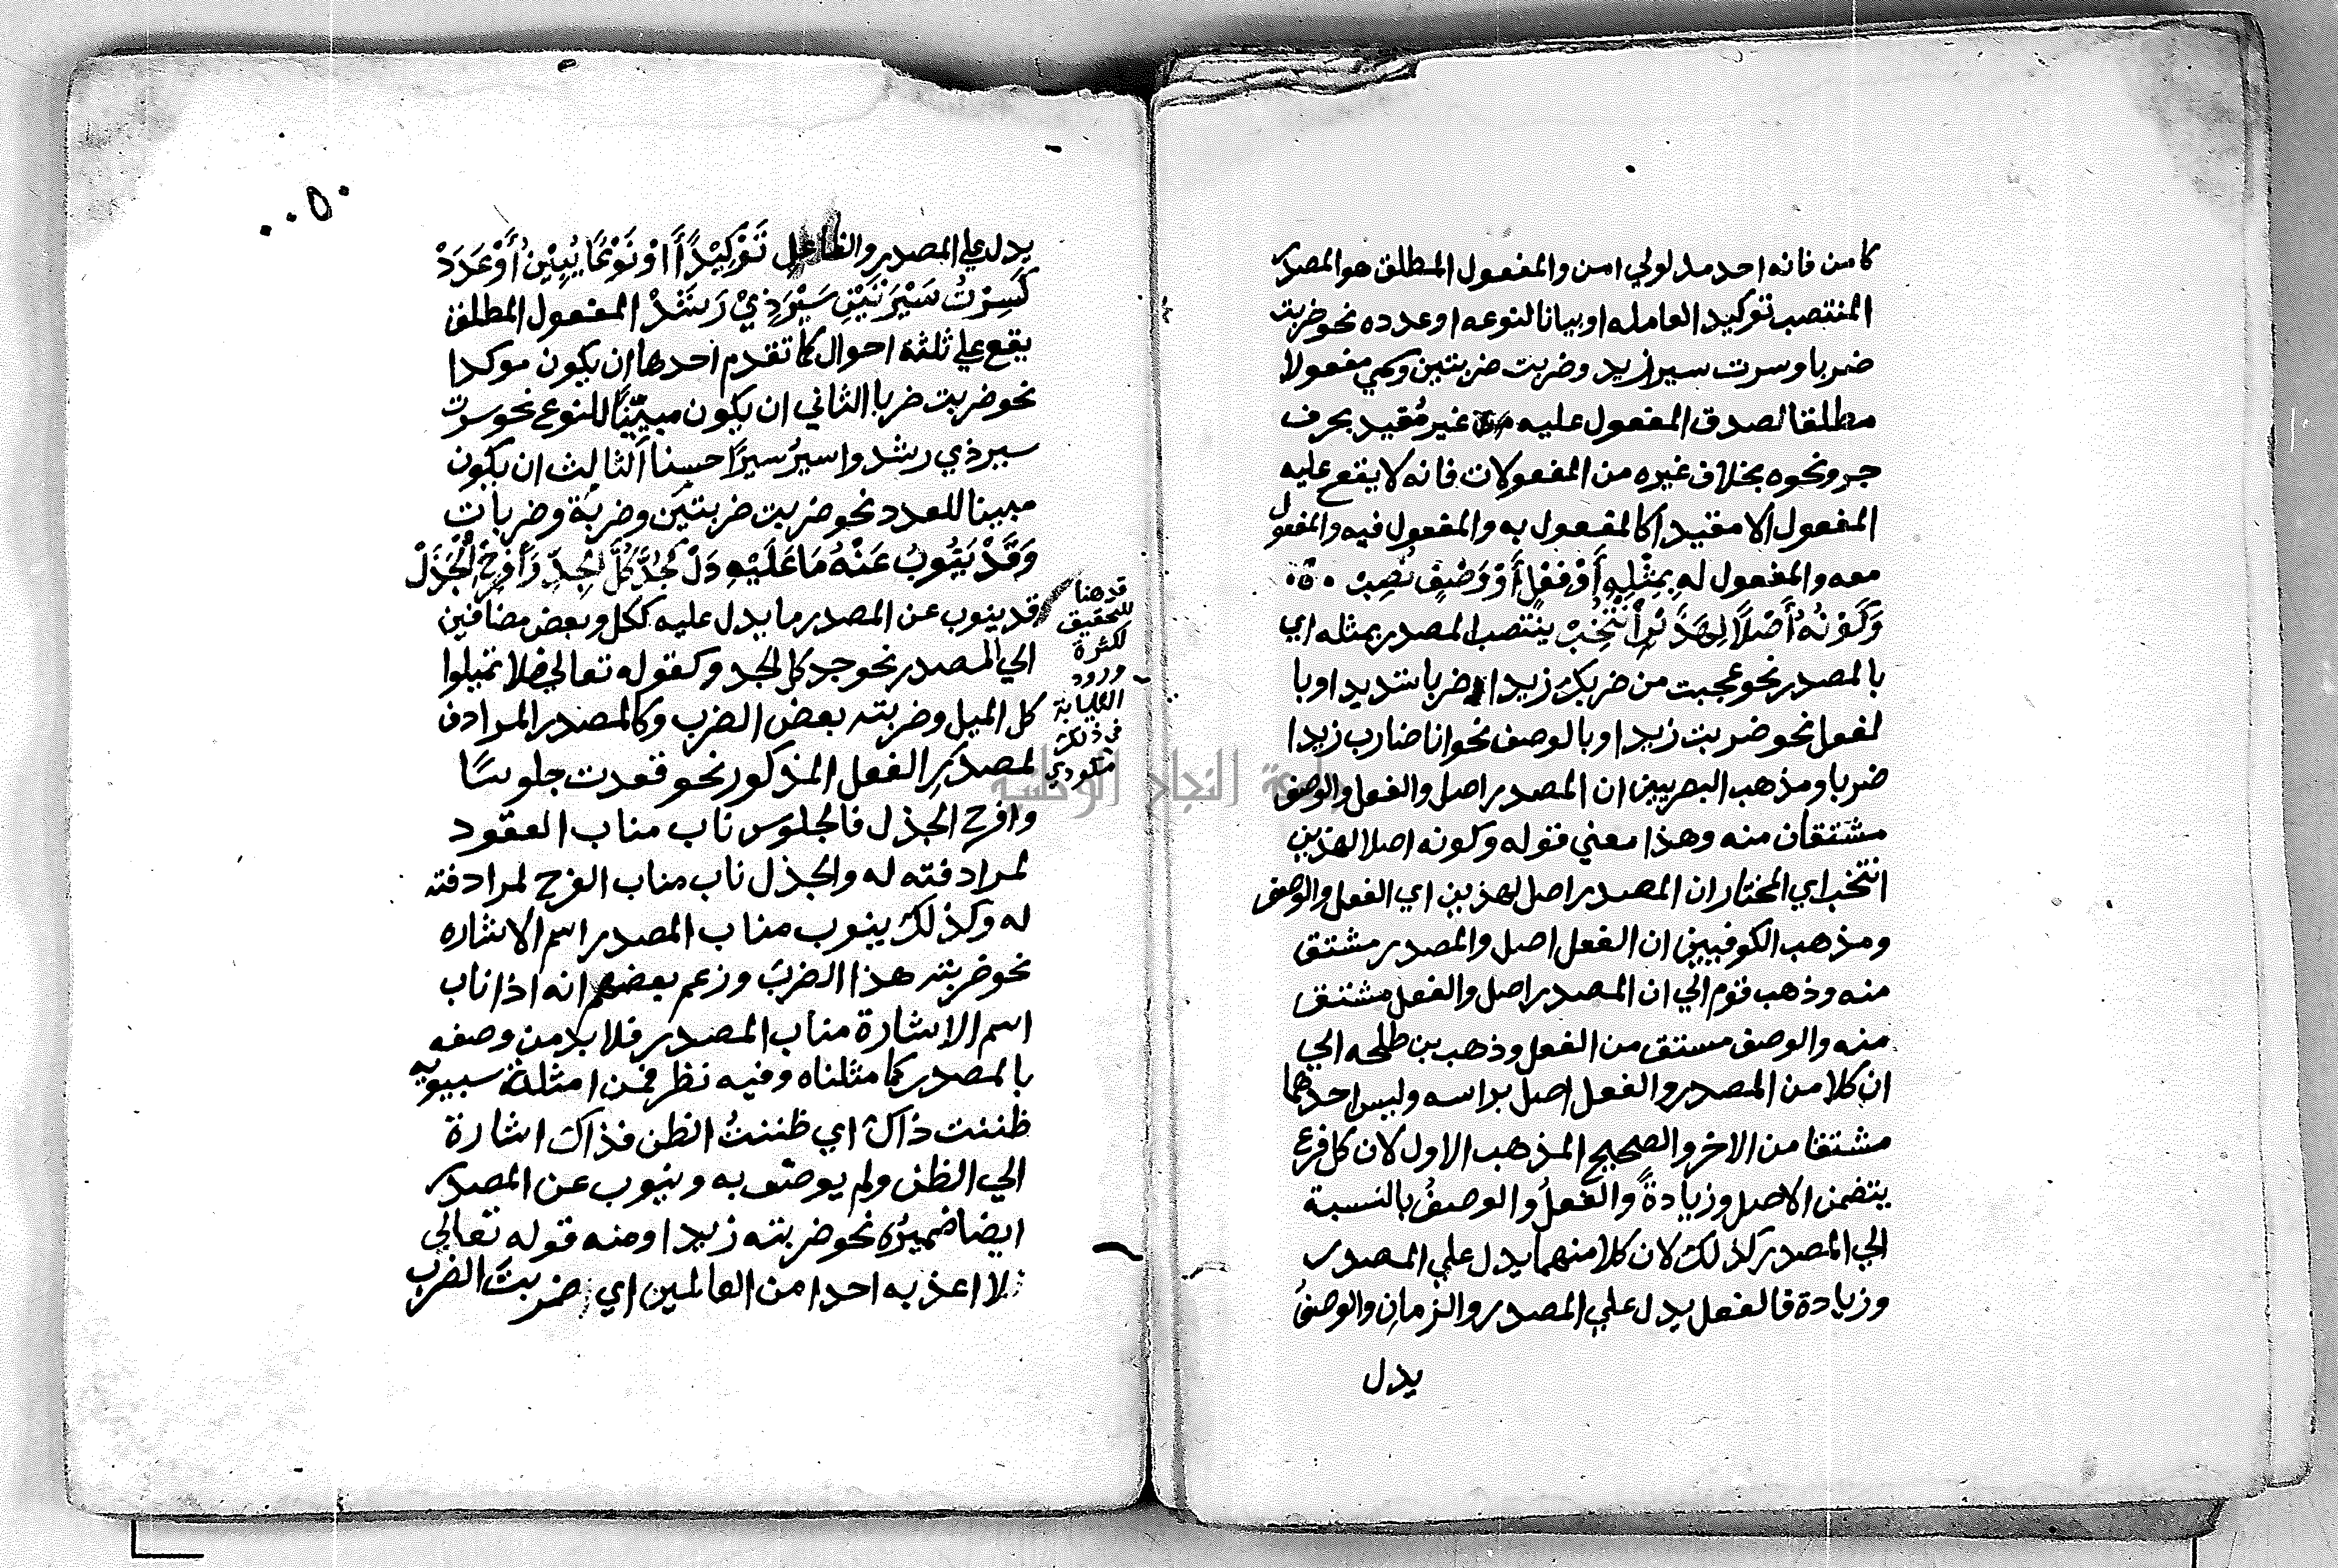 كامن فانه احد مدلولي امن والمفعول المطلق هو المصدر
المنتصب توكيد العامله او بيانا لنوعه او عدده نحو ضربت
ضربا وسرت سير زيد وضربت ضربتين وسمي مفعولا
مطلقا لصدق المفعول عليه غير مُقيد بحرف
جر ونحوه بخلاف غيره من المفعولات فانه لا يقع عليه
المفعول الا مقيدا كالمفعول به والمفعول فيه والمفعول
معه والمفعول له بِمِثْلِهِ أَوْ فِعْلٍ أَوْ وَصْفٍ نُصِبْ
وَكَوْنُهُ أَصْلًا لِهَذَيْنِ انْتُخِبْ ينتصب المصدر بمثله اي
بالمصدر نحو عجبت من ضربك زيدا ضربا شديدا وبا
لفعل نحو ضربت زيدا وبالوصف نحو انا ضارب زيدا
ضربا ومذهب البصريين ان المصدر اصل والفعل والوصف
مشتقان منه وهذا معني قوله وكونه اصلا لهذين
انتخب اي المختار ان المصدر اصل لهذين اي الفعل والوصف
ومذهب الكوفيين ان الفعل اصل والمصدر مشتق
منه وذهب قوم الي ان المصدر اصل والفعل مشتق
منه والوصف مستق من الفعل وذهب بن طلحه الي
ان كلا من المصدر والفعل اصل براسه وليس احدهما
مشتقا من الاخر والصحيح المذهب الاول لان كل فرع
يتضمن الاصل وزيادةً والفعلُ والوصفُ بالنسبة
الي المصدر كذلك لان كلا منهما يدل علي المصدر
وزيادة فالفعل يدل علي المصدر والزمانِ والوصفُ
يدل
٥٠
يدل علي المصدر والفاعل تَوْكِيْدًا أَوْ نَوْعًا يُبِيْنُ أَوْ عَدَدْ
كَسِرْتُ سَيْرَتَيْنِ سَيْرَ ذِيْ رَشَدْ المفعول المطلق
يقع علي ثلثة احوال كما تقدم احدها ان يكون موكدا
نحو ضربت ضربا الثاني ان يكون مبيّنًا للنوع نحو سرت
سير ذي رشد واسيرُ سيرًا حسنا الثالث ان يكون
مبينا للعدد نحو ضربت ضربتين وضربة وضربات
وَقَدْ يَنُوبُ عَنْهُ مَا عَلَيْهِ دَلْ كَجُدَّ كُلَّ الْجِدِّ وَافْرَحِ الْجَذَلْ
قد ينوب عن المصدر ما يدل عليه ككل وبعض مضافين
الي المصدر نحو جد كل الجد وكقوله تعالي فلا تميلوا
كل الميل وضربته بعض الضرب وكالمصدر المرادف
لمصدرِ الفعل المذكور نحو قعدت جلوسًا
وافرح الجذل فالجلوس ناب مناب العقود
لمرادفته له والجذل ناب مناب الفرح لمرادفته
له وكذلك ينوب مناب المصدر اسم الاشاره
نحو ضربته هذا الضربَ وزعم بعضهم انه اذا ناب
اسم الاشارة مناب المصدر فلا بد من وصفه
بالمصدر كما مثلناه وفيه نظر فمن امثلة سيبويه
ظننت ذاك اي ظننتُ الظن فذاك اشارة
الي الظن ولم يوصف به وينوب عن المصدر
ايضا ضميرُه نحو ضربته زيدا ومنه قوله تعالي
لا اعذبه احدا من العالمين اي ضربت الضرب
قد هنا
للتحقيق
لكثرة
ورود
في ذلك
مكودي
جامعة النجاح الوطنية